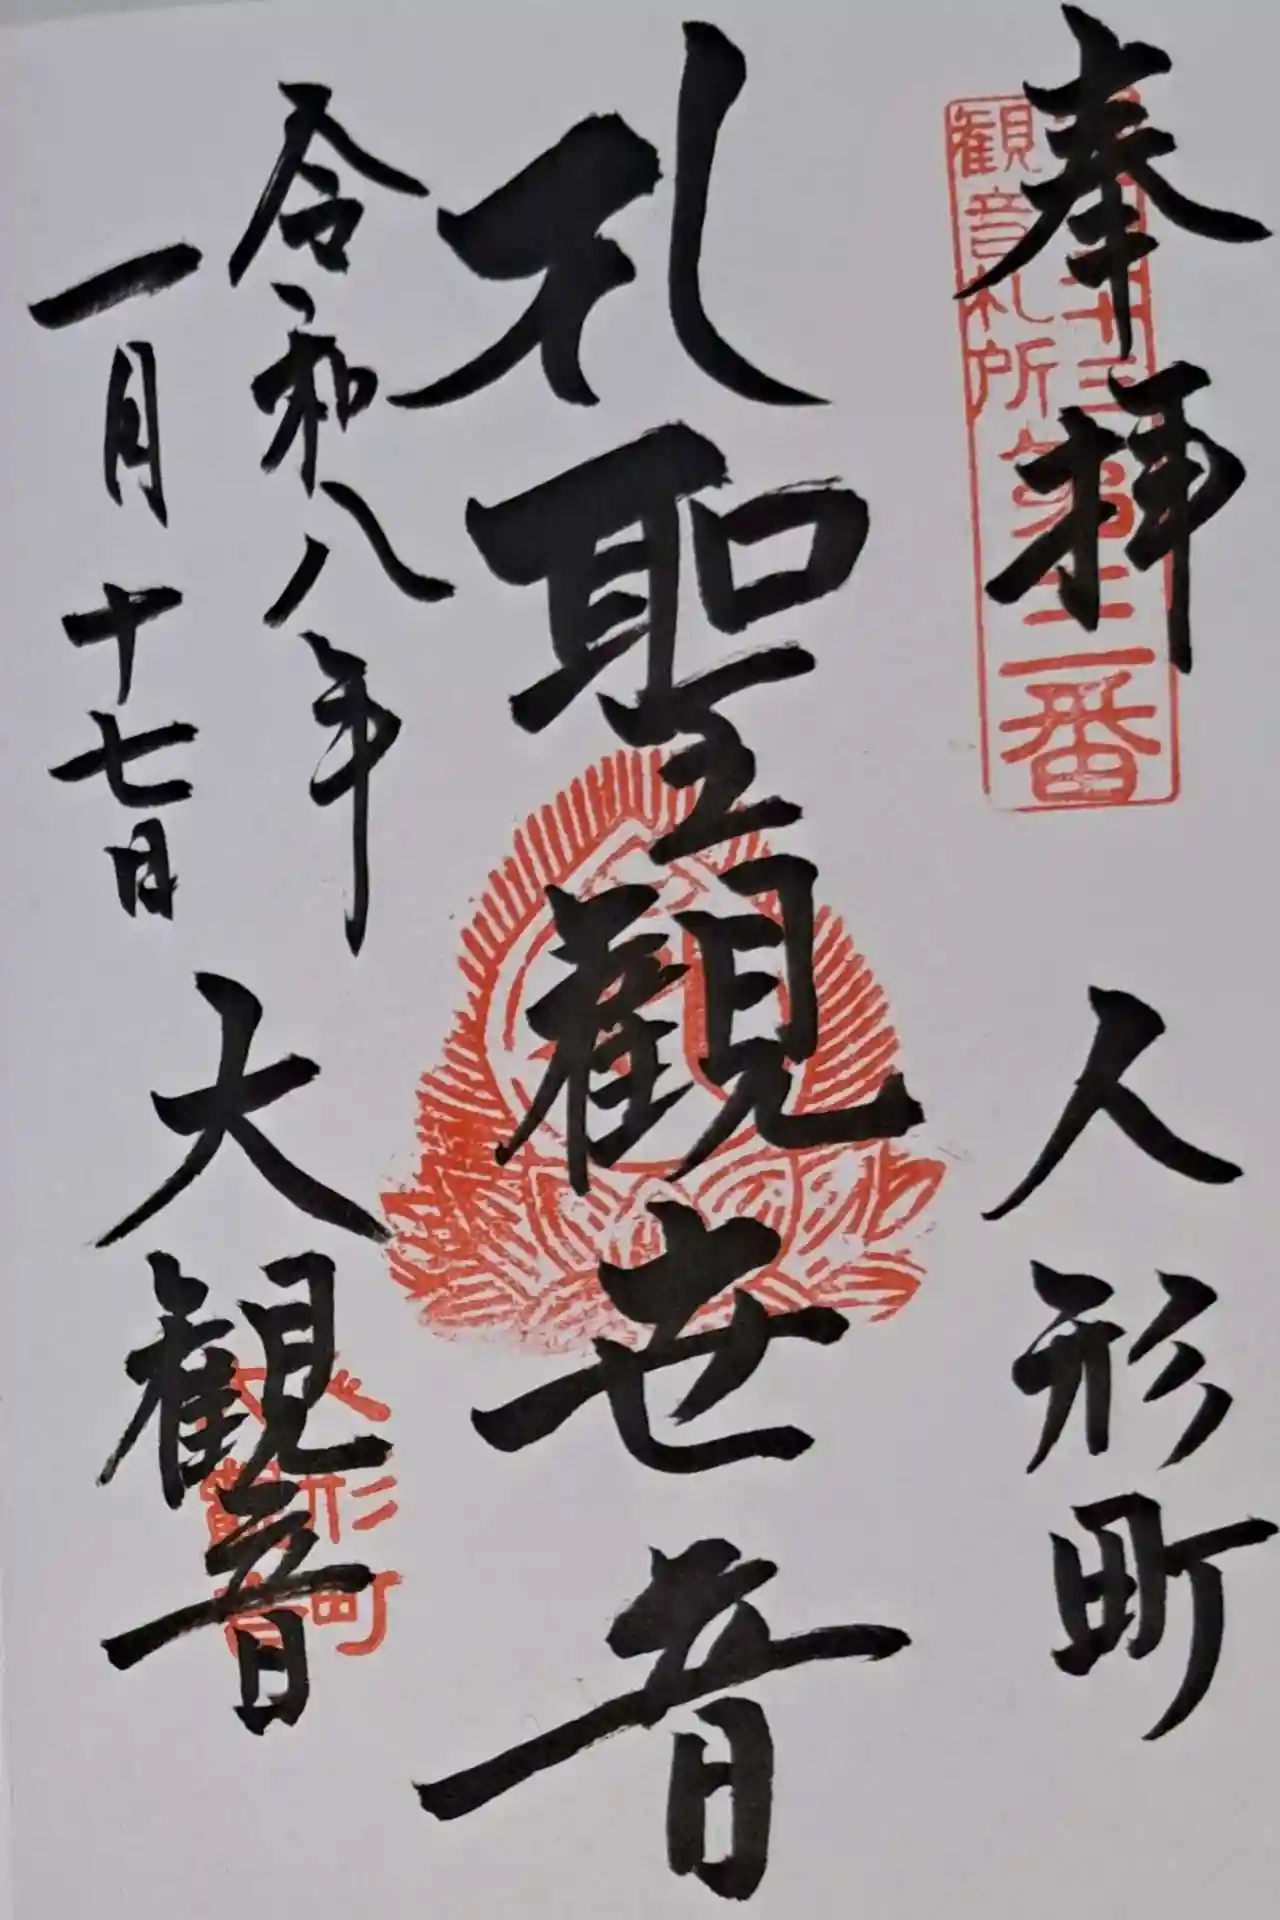 奉拝
人形町
江戸三十三
観音札所
第三番
礼聖觀世音
令和八年
一月十七日
大観音
人形町
大観音